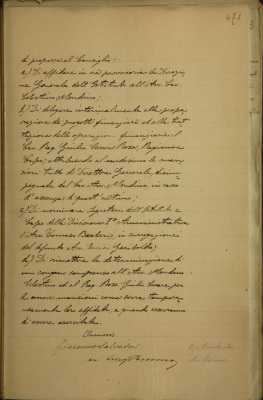 471
di proporre al Consiglio:
a) Di affidare in via provvisoria la Direzio-
ne Generale dell'Istituto all'Avv. Cav.
Celestino Mondino;
b) Di delegare interinalmente alla prepa-
razione dei progetti finanziari ed alla trat-
tazione delle operazioni finanziarie il
Cav. Rag. Giulio Cesare Boss, Ragioniere
Capo, attribuendo al medesimo le man-
sioni tutte di Direttore Generale, disim-
pegnate dal Cav. Avv. Mondino, in caso
d'assenza di quest'ultimo;
c) Di nominare Segretario dell'Istituto e
Capo della Divisione Amministrativa
l'Avv. Tomaso Barberis, in surrogazione
del defunto Avv. Garibaldi;
d) Di rimettere la determinazione di
un congruo compenso all'Avv. Mondino
Celestino ed al Rag. Boss Giulio Cesare, per
le nuove mansioni come sovra, tempora-
neamente loro affidate, a quando cesseranno
d'essere esercitate.